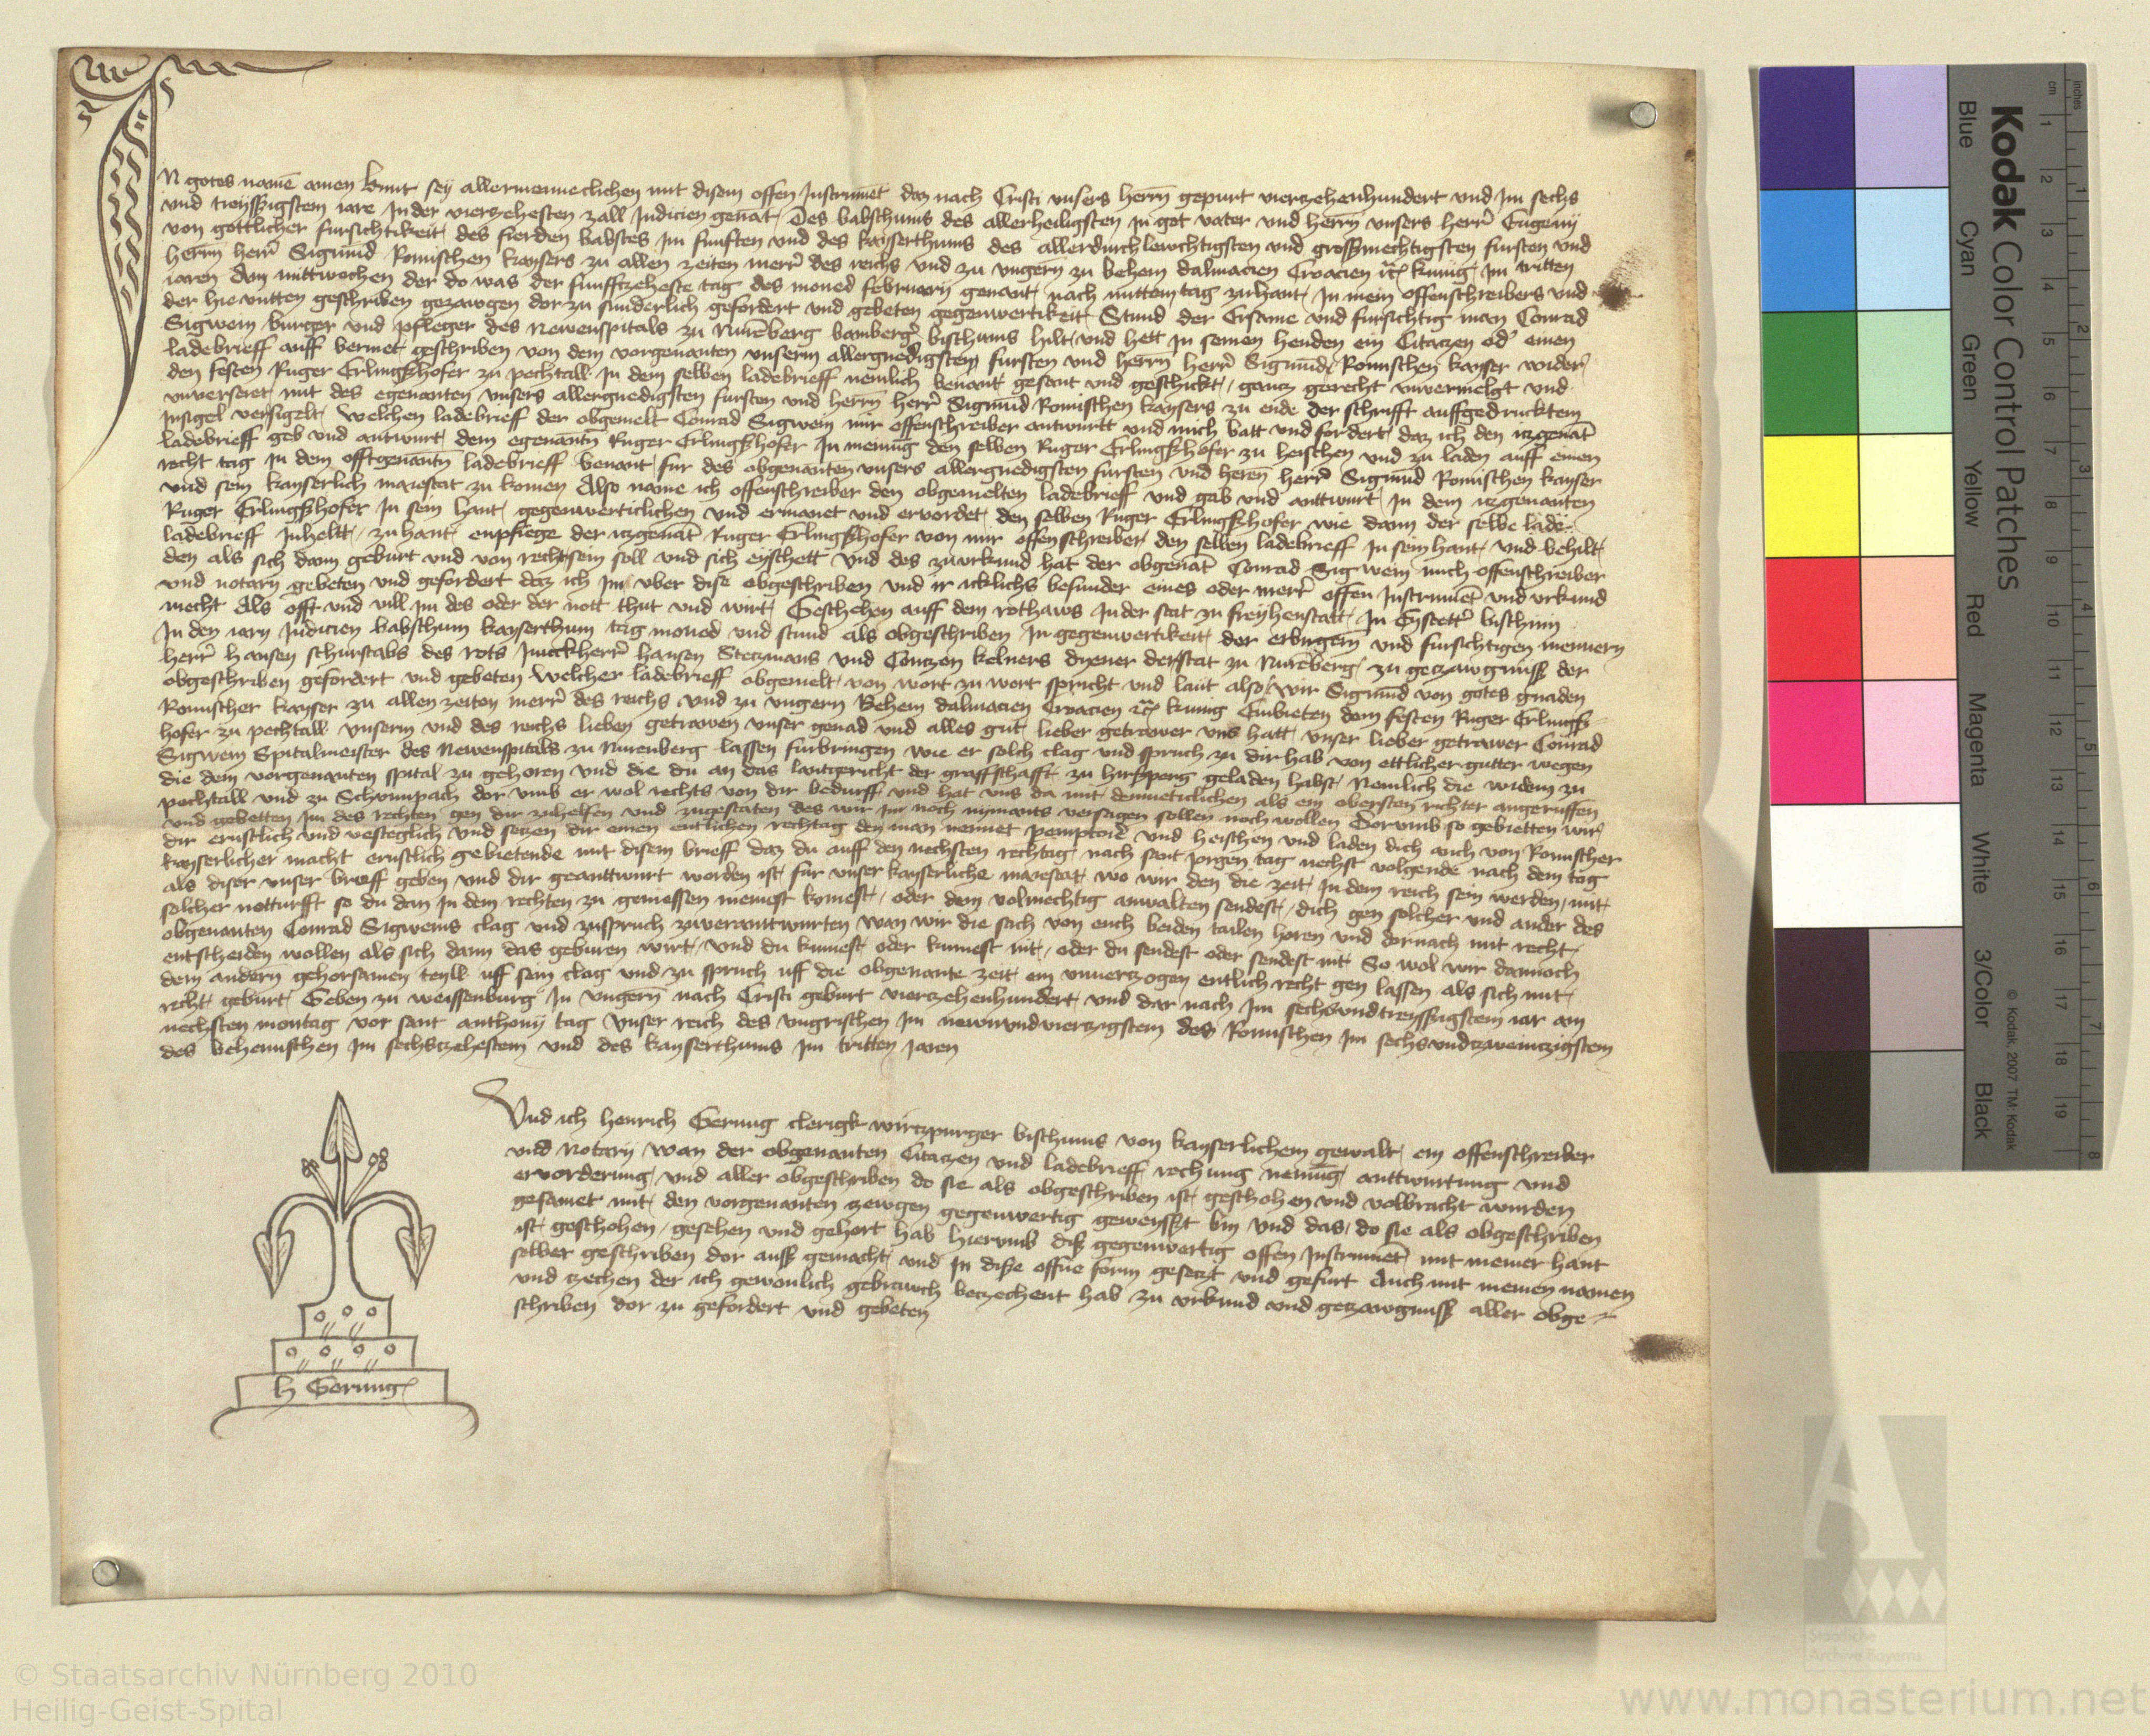 IN gotes namē amen kunt sey allermenneclichen mit disem offen Instrumēt daz nach Cristi unsers herrn gepurt vierzehenhundert und Im sechs
und treyssigstem iare In der vierzehesten zall Indicien genāt Des babstthums des allerheiligsten In got vater und herrn unsers herrn Eugenij
von gottlicher fursichtikeit des fierden babstes Im funften und des kayserthums des allerdurchlewchtigsten und grossmechtigsten fursten und
herrn herrn Sigmūd Romischen kaysers zu allen zeiten merer des reichs und zu ungern zu behem dalmacien Croacien rc kunig Im tritten
iaren Am mittwochen der do was der funfftzeheste tag des moned februarij genant nach mittemtag zuhant In mein offenschreibers und
der hievntten geschriben gezewgen dor zu sunderlich gefordert und gebeten gegenwertikeit Stund der Ersame und fursichtig man Conrad
Sigwein burger und pfleger des Newenspitals zu Nurēberg bamberger bisthums hilt und hett In seinen henden ein Citaczen oder einen
ladebrieff auff berment geschriben von dem vorgenanten unserm allergnedigsten fursten und herrn herrn Sigmūd Romischen kayser wider
den festen Ruger Erlingshofer zu pechtall In dem selben ladebrieff nemlich benant gesant und geschickt gancz gerecht unvermelgt und
unverseret mit des egenanten unsers allergnedigsten fursten und herrn herrn Sigmūd Romischen kaysers zu ende der schrifft auffgedrucktem
Insigel versigelt Welchen ladebrieff der obgemelt Conrad Sigwein mir offenschreiber antwurtt und mich batt und fordert daz ich den iczgenāt
ladebrieff geb und antwurt dem egenantn Ruger Erlingshofer In meinūg den selben Ruger Erlingshofer zu heischen und zu laden auff einen
recht tag In dem offtgenantn ladebrieff benant fur des obgenanten unsers allergnedigsten fursten und heren herrn Sigmūd Romischen kayser
und sein kayserlich maiestat zu komen Also name ich offenschreiber den obgemelten ladebrieff und gab und anttwurt In dem iczgenanten
Ruger Erlingshofer In sein hant gegenwerticlichen und ermanet und ervordet den selben Ruger Erlingshofer wie dann der selbe lade-
ladebrieff Inheltt zu hant enpfiege der iczgenāt Ruger Erlingshofer von mir offenschreiber den selben ladebrieff In sein hant und behilt
den als sich dann geburt und von recht sein soll und sich eyschett Und des zu urkund hat der obgenāt Conrad Sigwein mich offenschreiber
und notary gebeten und gefordert daz ich Im uber dise obgeschriben und ir icklichs besunder eines oder merer offen Instrumēt und urkund
mecht Als offt und vill Im des oder der nott thut und wirt Geschehen auff dem rothaws In der stat zu freyhenstatt In Eystetter bisthum
In den iarn Indicien babsthum kayserthum tag moned und stund als obgeschriben In gegenwertikeit der erbergern und fursichtigen mennern
herrn hansen schurstabs des rots Junckherrn hansen Steczmans und Conczen kelners dyener der stat zu Nurēberg zu geczewgnuss der
obgeschriben gefordert und gebeten Welcher ladebrieff obgemelt von wort zu wort spricht und laut also Wir Sigmūd von gotes gnaden
Romischer kayser zu allen zeiten merer des reichs und zu ungern Behem dalmacien Croacien rc kunig Embieten dem festen Ruger Erlings-
hofer zu pechtall unserm und des reichs lieben getrewen unser genad und alles gut lieber getrewer uns hatt unser lieber getrewer Conrad
Sigwein Spitalmeister des Newenspitals zu Nurenberg lassen furbringen wie er solch clag und spruch zu dir hab von ettlicher gutter wegen
die dem vorgenanten spital zu gehoren und die du an das lantgericht der graffschafft zu hirsperg geladen habst Nemlich die widem zu
pechtall und zu Schompach dor umb er wol rechts von dir bedurff und hat uns da mit demuticlichen als ein obersten richter angeruffen
und gebetten Im des rechten gen dir zuhelfen und zugestaten des wir Im noch nymants versagen sollen noch wollen Dorumb so gebietten wir
dir ernstlich und vesteglich und seczen dir einen entlichen rechtag den man nennet pemptorie und heischen und laden dich auch von Romischer
kayserlicher macht ernstlich gebietende mit disem brieff daz du auff den nechsten rechtag nach sant Jorgen tag nechst volgende nach dem tag
als diser unser brieff geben und dir geanttwurt worden ist fur unser kayserliche maiestat wo wir den die zeit In dem reich sein werden mit
solcher notturfft so du dan In dem rechten zu geniessen meinest komest oder dem volmechtig anwalten sendest dich gen solcher und ander des
obgenanten Conrad Sigweins clag und zuspruch zuverantwurten wan wir die sach von euch beiden tailen horen und dornach mit recht
entscheiden wollen als sich dann das geburen wirt und du kumest oder kumest nit oder du sendest oder sendest nit So wol wir dannoch
dem andern gehorsamen teyll uff sein clag und zu spruch uff die obgenante zeit ein unverczogen entlich recht gen lassen als sich mit
recht geburt Geben zu weissenburg In ungern nach Cristi geburt vierzehenhundert und dar nach Im sechsundtreyssigstem iar am
nechsten montag vor sant anthonij tag Unser reich des ungrischen Im newnundvierzigstem des Romischen Im sechsundzweinczigstem
des behemischen Im sechszehestem und des kayserthums Im tritten Jaren
Und ich henrich Gerung clerigk wirczpurger bisthums von kayserlichem gewalt ein offenschreiber
und Notary wan der obgenanten Citaczen und ladebrieff rechung nemūg anttwurtung und
ervorderung und aller obgeschriben do sie als obgeschriben ist geschehen und volbracht wurden
gesamet mit den vorgenanten zewgen gegenwertig geweysst bin und das do sie als obgeschriben
ist geschehen gesehen und gehort hab hierumb dis gegenwertig offen Instrumēt mit meiner hant
selber geschriben dor auss gemacht und In dise offne form geseczt und gefurt Auch mit meinen namen
und zechen der ich gewonlich gebrauch beczechent hab zu urkund und geczewgnuss aller obge-
schriben dor zu gefordert und gebeten
h Gerung
Kodak Color Control Patches
Blue Cyan Green Yellow Red Magenta White 3/Color Black
© Kodak, 2007 TM: Kodak
cm 1 2 3 4 5 6 7 8 9 10 11 12 13 14 15 16 17 18 19
inches 1 2 3 4 5 6 7 8
Staatliche
Archive Bayerns
© Staatsarchiv Nürnberg 2010
Heilig-Geist-Spital
www.monasterium.net